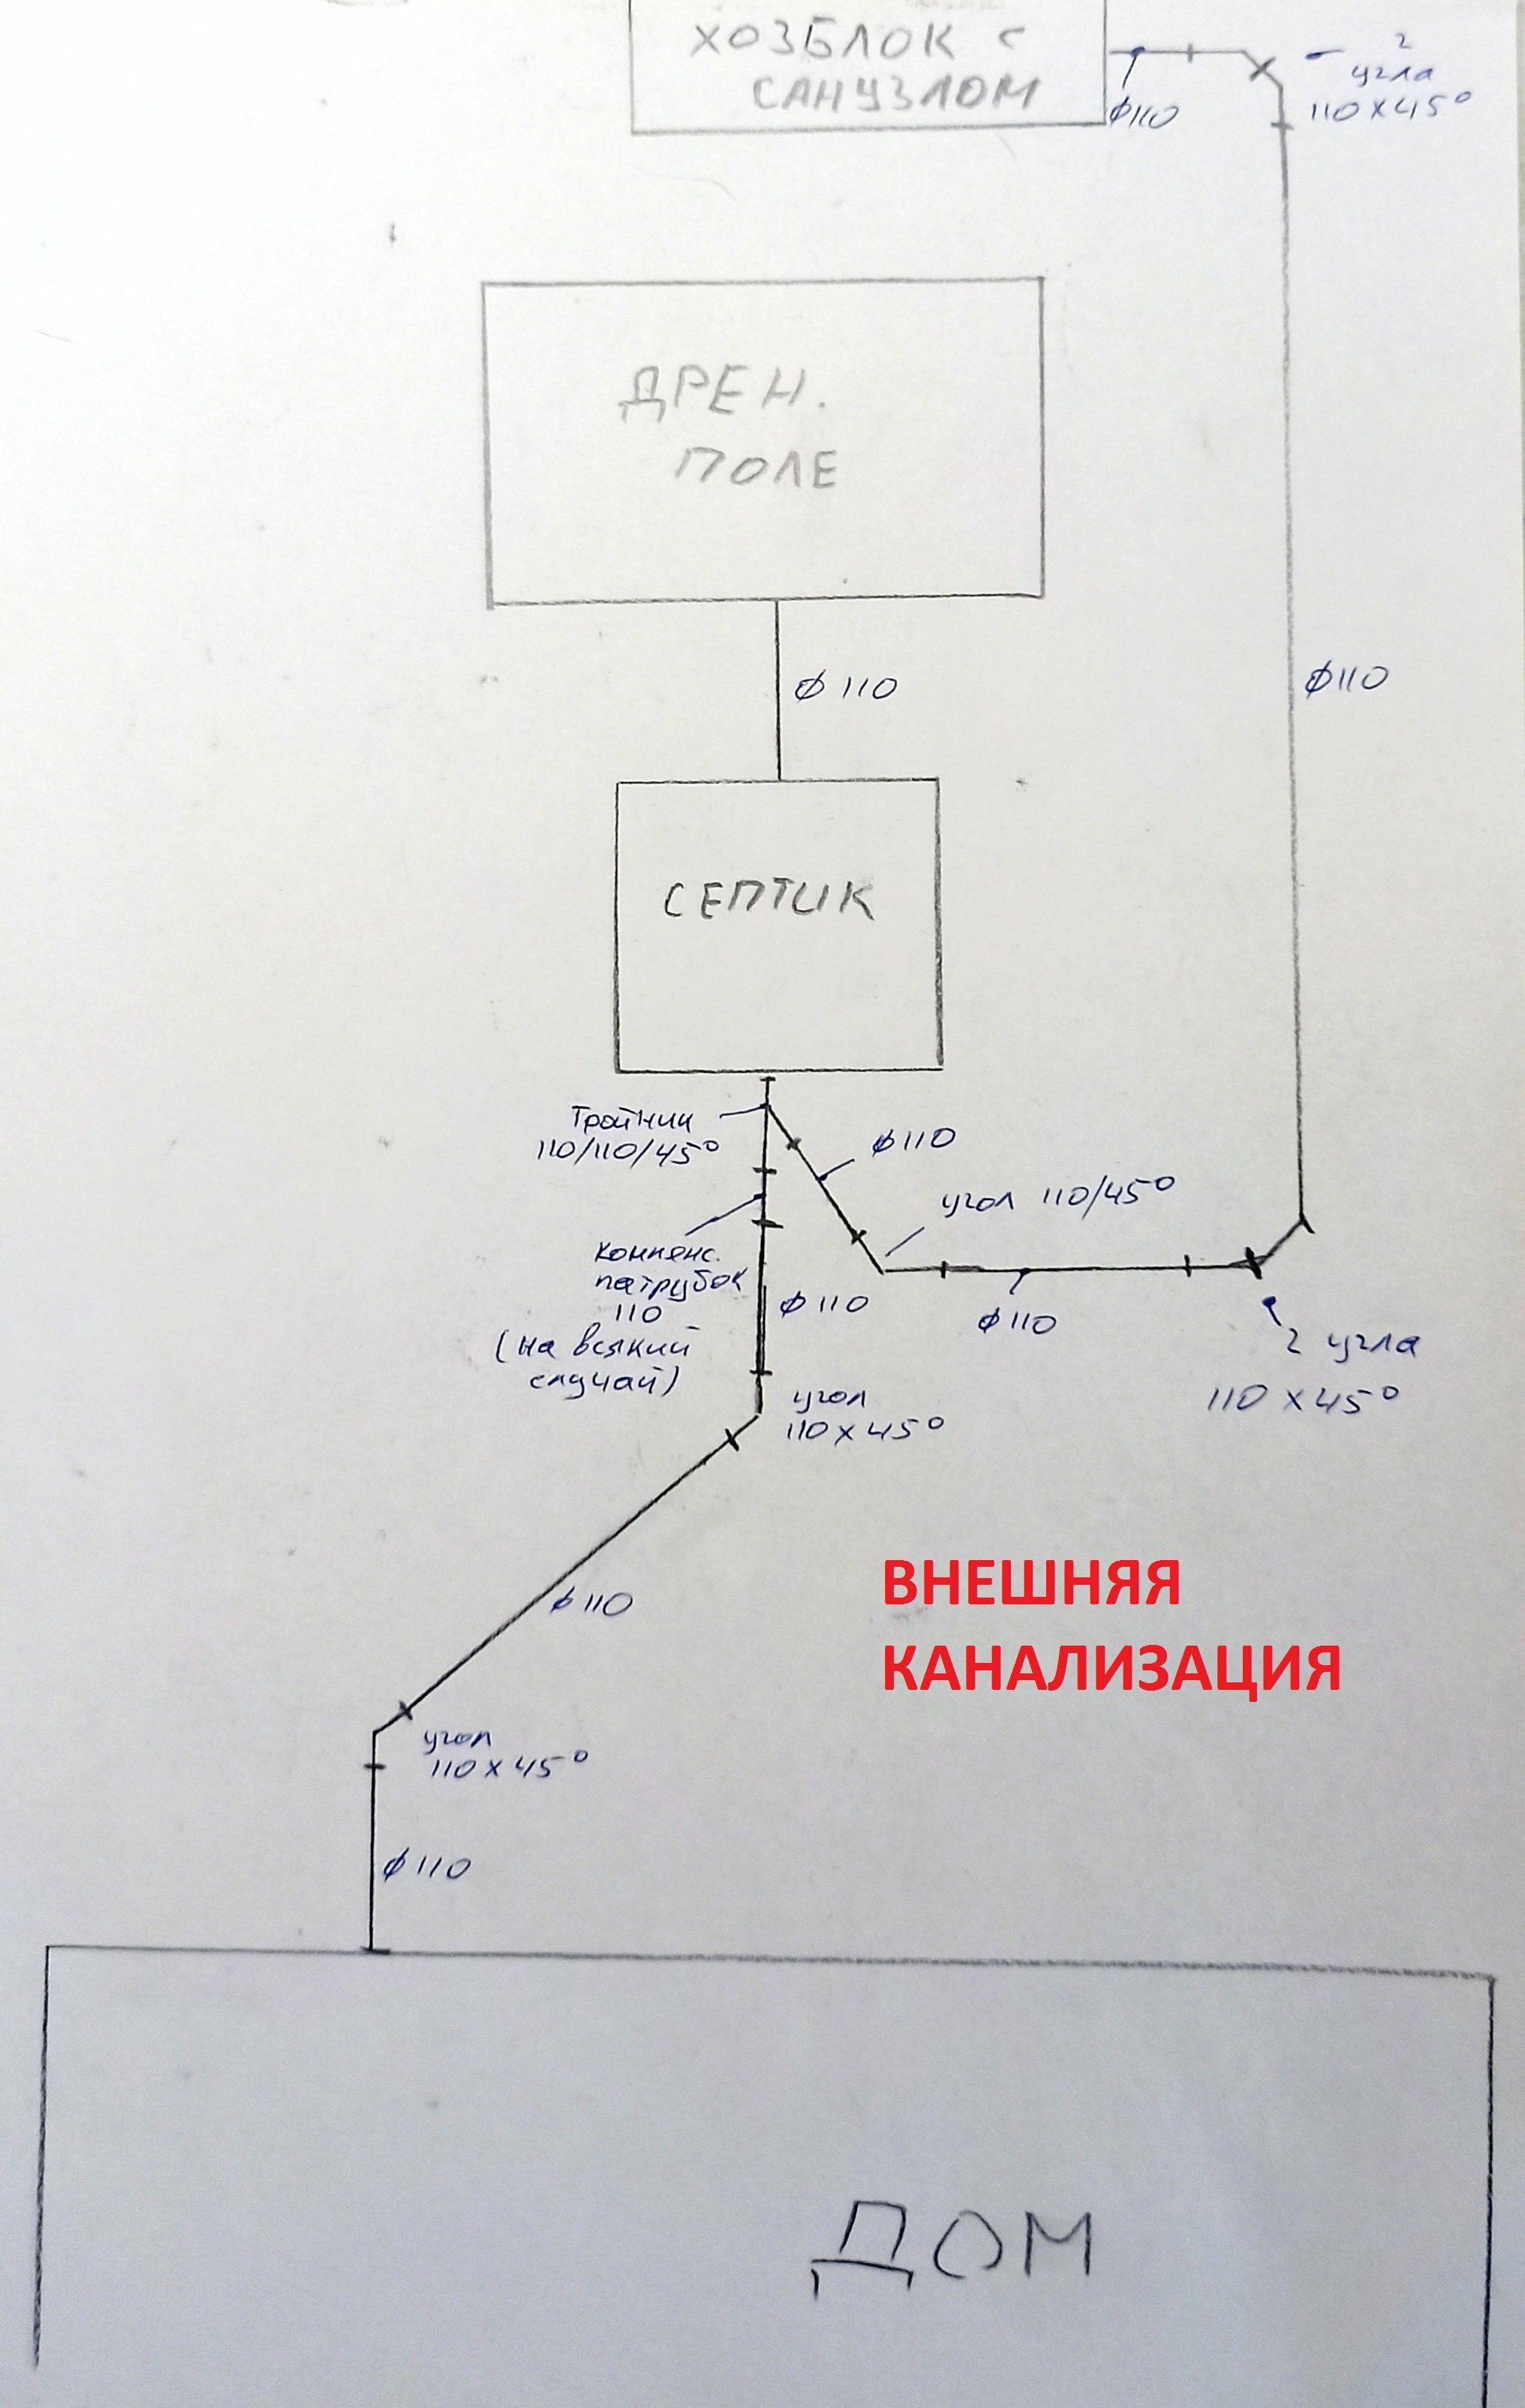 ХОЗБЛОК С
САНУЗЛОМ
ф110
2
угла
110 х 45°
ДРЕН.
ПОЛЕ
ф 110
ф110
СЕПТИК
Тройник
110/110/45°
ф110
угол 110/45°
компенс.
патрубок
110
(на всякий
случай)
ф110
ф110
2 угла
110 х 45°
угол
110 х 45°
ф110
ВНЕШНЯЯ
КАНАЛИЗАЦИЯ
угол
110 х 45°
ф110
ДОМ